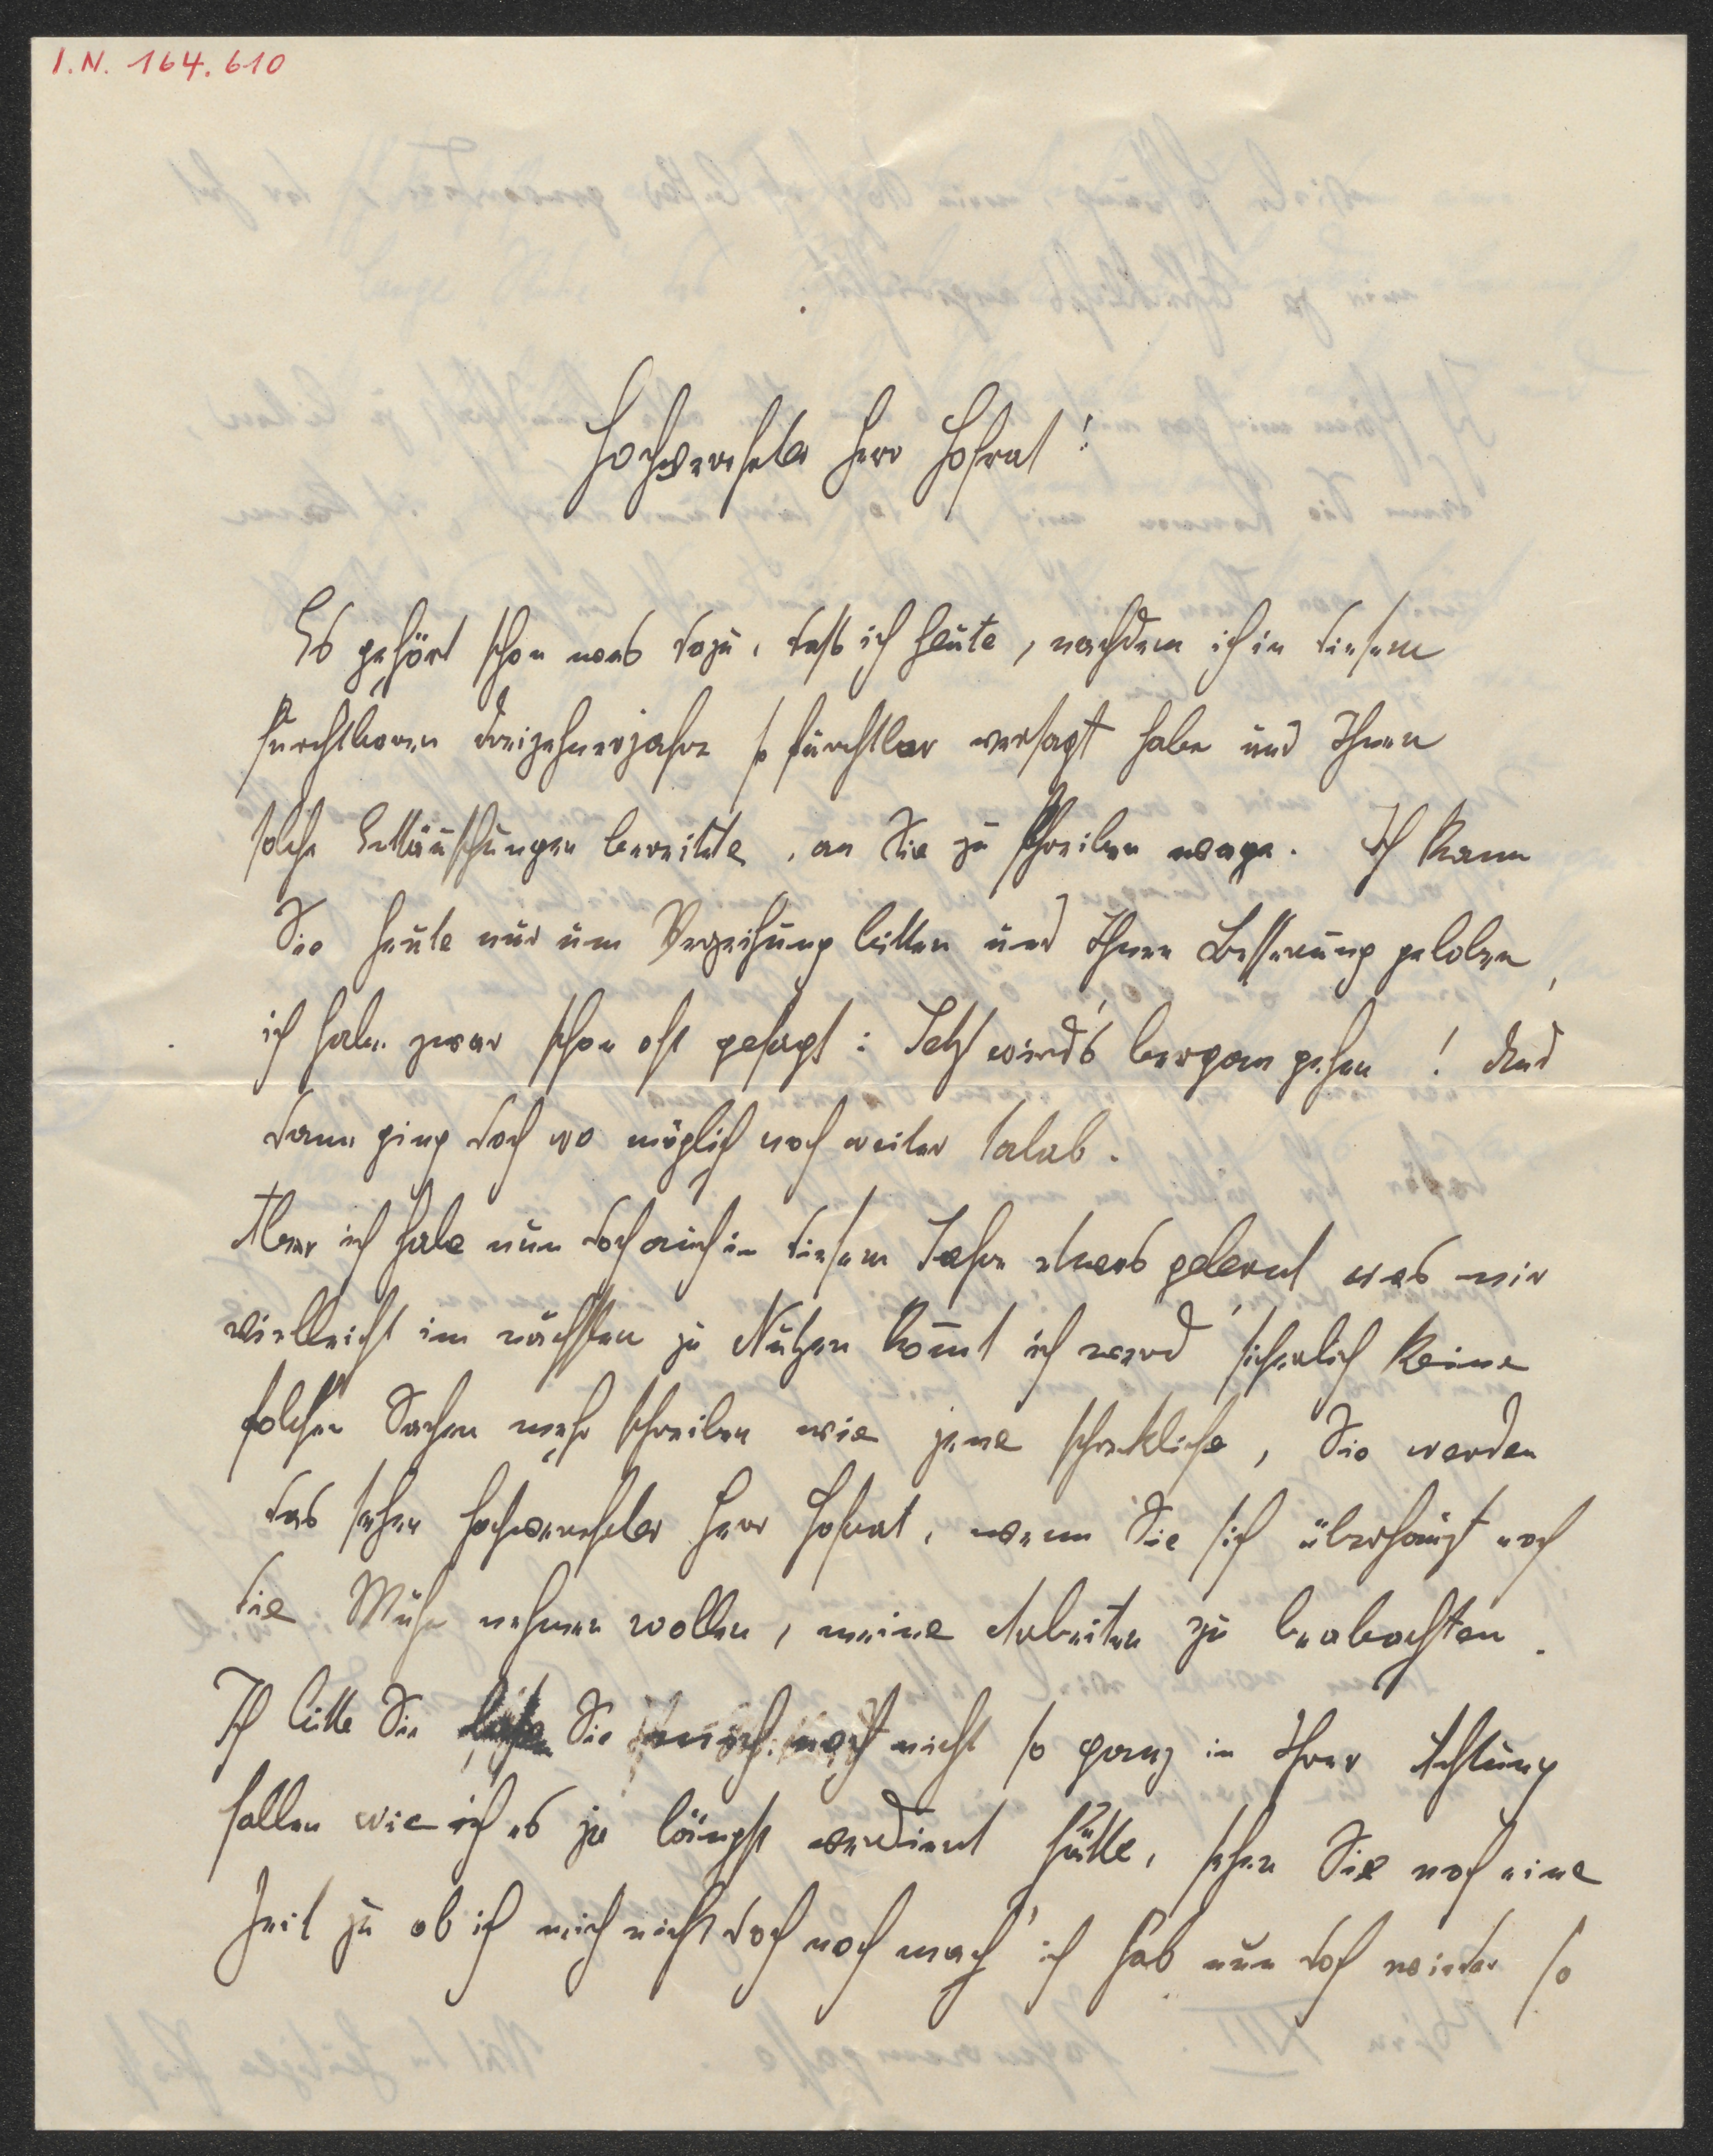 I.N. 164.610
Hochverehrter Herr Hofrat!
Es gehört schon was dazu, daß ich heute, nachdem ich in diesem
furchtbaren Dreizehnerjahre so furchtbar versagt habe und Ihnen
solche Enttäuschungen bereitete, an Sie zu schreiben wage. Ich kann
Sie heute nur um Verzeihung bitten und Ihnen Besserung geloben,
ich habe zwar schon oft gesagt: Jetzt wird's bergan gehen! Und
dann ging doch wo möglich noch weiter talab.
Aber ich habe nun doch auch in diesem Jahre etwas gelernt was mir
vielleicht im nächsten zu Nutzen kom̅t ich werd' sicherlich keine
solchen Sachen mehr schreiben wie jene schreckliche, Sie werden
das sehen hochverehrter Herr Hofrat, wenn Sie sich überhaupt noch
die Mühe nehmen wollen, meine Arbeiten zu beobachten.
Ich bitte Sie Sie mich noch nicht so ganz in Ihrer Achtung
fallen wie ich es ja längst verdient hätte, sehen Sie noch eine
Zeit zu ob ich mich nicht doch noch mach' ich hab nun doch wieder so